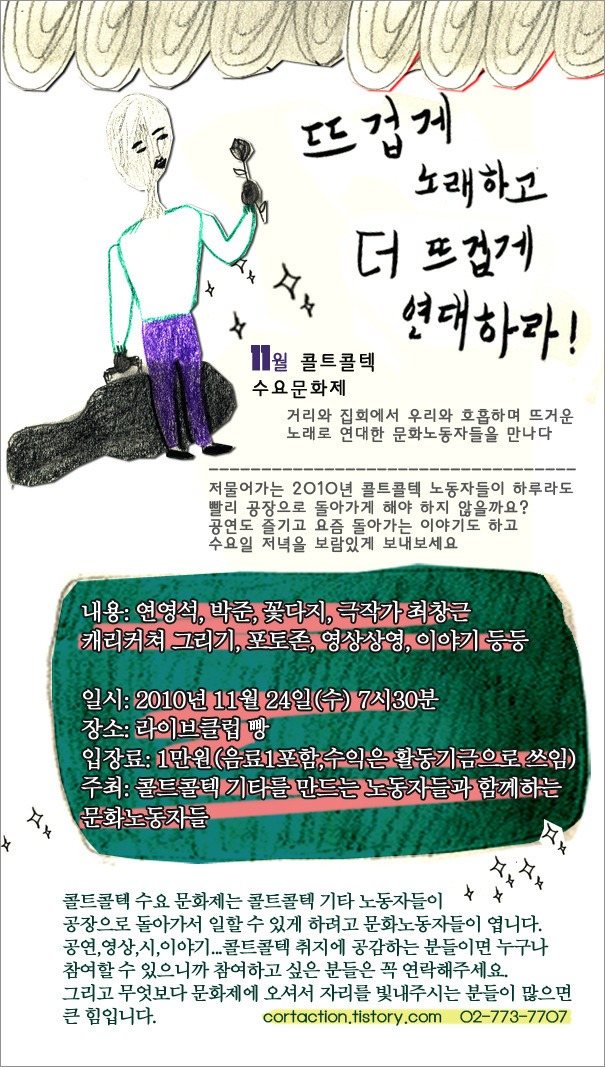 뜨겁게
노래하고
더 뜨겁게
연대하라!
11월 콜트콜텍
수요문화제
거리와 집회에서 우리와 호흡하며 뜨거운
노래로 연대한 문화노동자들을 만나다
저물어가는 2010년 콜트콜텍 노동자들이 하루라도
빨리 공장으로 돌아가게 해야 하지 않을까요?
공연도 즐기고 요즘 돌아가는 이야기도 하고
수요일 저녁을 보람있게 보내보세요
내용: 연영석, 박준, 꽃다지, 극작가 최창근
캐리커쳐 그리기, 포토존, 영상상영, 이야기 등등
일시: 2010년 11월 24일(수) 7시30분
장소: 라이브클럽 빵
입장료: 1만원(음료1포함,수익은 활동기금으로 쓰임)
주최: 콜트콜텍 기타를 만드는 노동자들과 함께하는
문화노동자들
콜트콜텍 수요 문화제는 콜트콜텍 기타 노동자들이
공장으로 돌아가서 일할 수 있게 하려고 문화노동자들이 엽니다.
공연,영상,시,이야기...콜트콜텍 취지에 공감하는 분들이면 누구나
참여할 수 있으니까 참여하고 싶은 분들은 꼭 연락해주세요.
그리고 무엇보다 문화제에 오셔서 자리를 빛내주시는 분들이 많으면
큰 힘입니다.
cortaction.tistory.com 02-773-7707